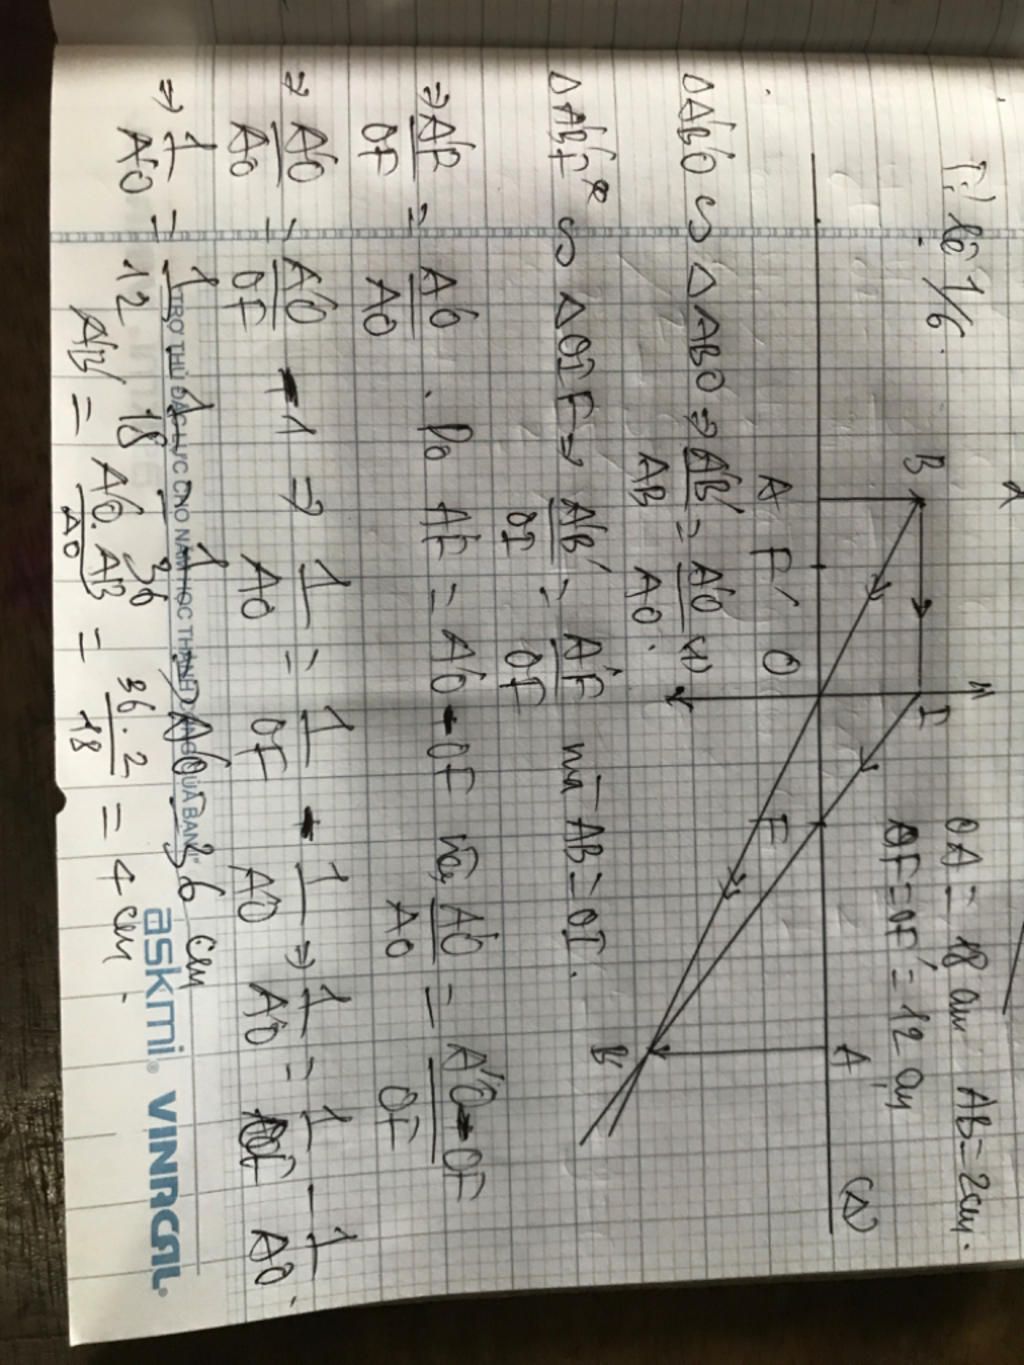 Tỉ lệ 1/6. OA = 18 cm AB = 2cm.
OF = OF' = 12 cm
B I
A F' O F A' (Δ)
B'
ΔA'B'O ∽ ΔABO ⇒ A'B'/AB = A'O/AO. (1)
ΔA'B'F ∽ ΔOIF ⇒ A'B'/OI = A'F/OF mà AB = OI.
⇒ A'F/OF = A'O/AO. Do A'F = A'O - OF nên A'O/AO = A'O - OF/OF
⇒ A'O/AO = A'O/OF - 1 ⇒ 1/AO = 1/OF - 1/A'O ⇒ 1/A'O = 1/OF - 1/AO.
⇒ 1/A'O = 1/12 - 1/18 = 1/36 ⇒ A'O = 36 cm
A'B' = A'O.AB/AO = 36.2/18 = 4 cm.
TRỢ THỦ ĐẮC LỰC CHO NĂM HỌC THÀNH CÔNG CỦA BẠN!
askmi. VINACAL